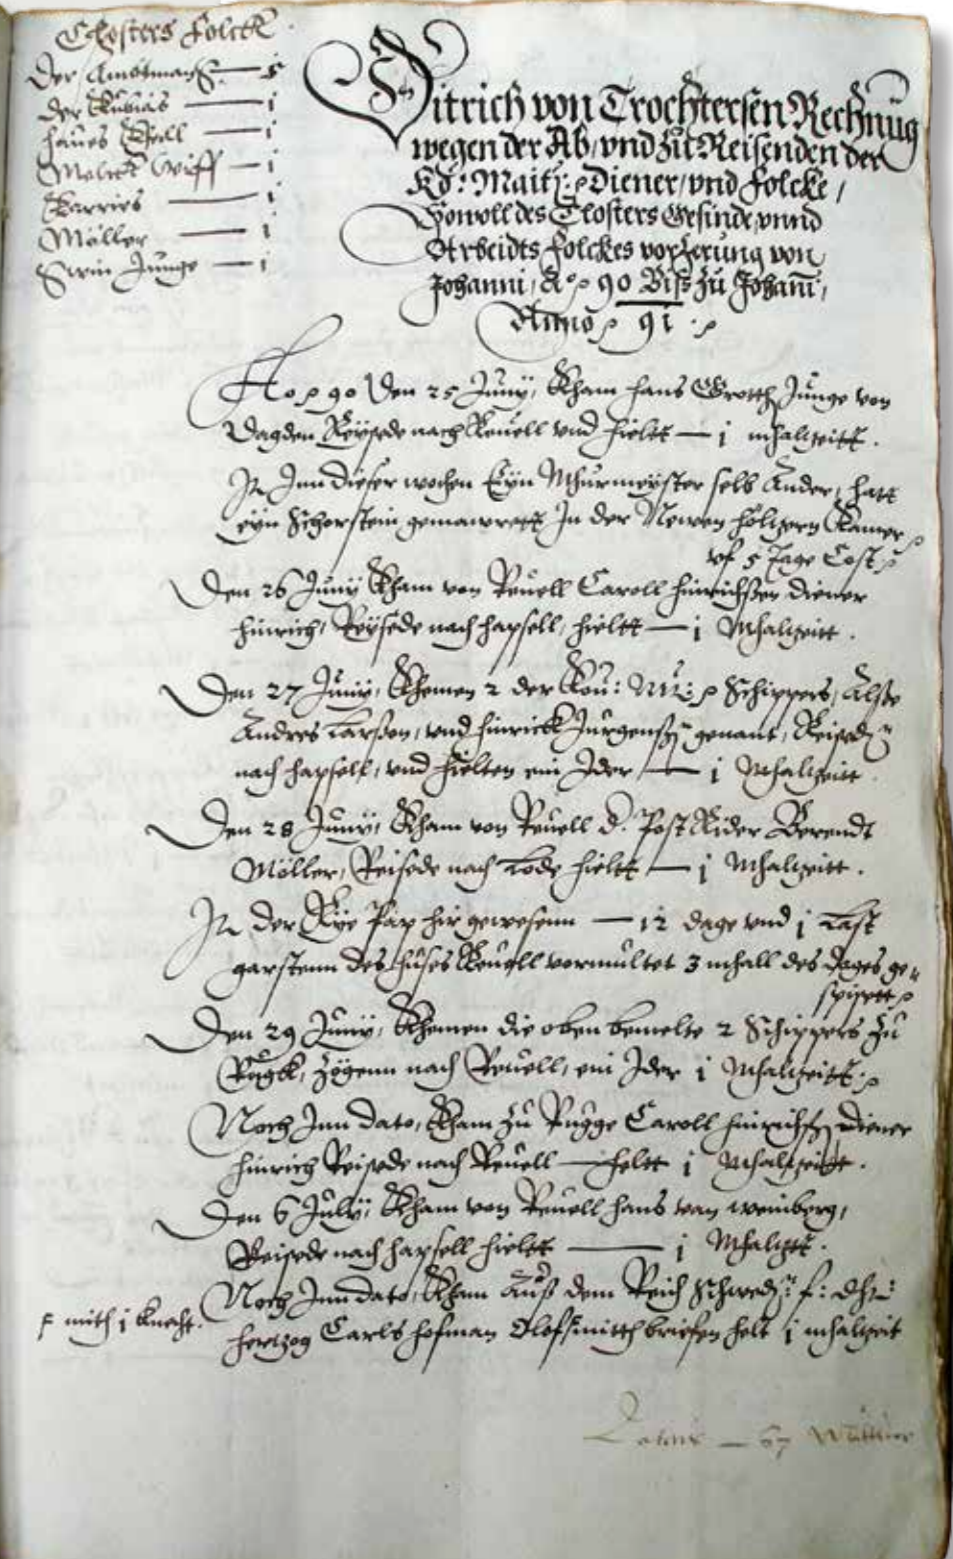 Closters Folck
Der Ambtman — 5
der Kubias — i
Haues Kerll — i
Melck Wiff — i
Karries — i
Möller — i
Swin Junge — i
Ditrich von Trochtersen Rechnüg
wegen der Ab, vnd Zu Reisenden der
Kö: Maitt: Diener, vnd Folcke,
Sowoll des Closters Gesinde, vnnd
Arbeidts Folckes vorzerung von
Johanni, Ao 90 Biß zu Johañi,
Anno 91.
Ao 90 Den 25 Junÿ, Kham Hans Grotth Junge von
Dagden Reÿsede nach Reuell vnd hieltt — i mhalzeitt.
Jtt Jnn dieser wochen Eyn Mhurmeyster selb Ander, hatt
eyn Schorstein gemawrett Jn der Newen höltzern Kamer
vf 5 Tage Cost
Den 26 Junÿ Kham von Reuell Caroll Hinrichßen diener
Hinrich, Reÿsede nach Hapsell, hieltt — i Mhalzeitt.
Den 27 Junÿ, Khemen 2 der Kön: Mtt: Schippers, Alße
Andres Larßen, vnd Hinrick Jurgenß genant, Reisedñ
nach Hapsell, vnd hielten ein Jder — i Mhalzeitt.
Den 28 Junÿ, Kham von Reuell d. Post Rider Berendt
Möller, Reisede nach Lode hieltt — i Mhalzeitt.
Jtt der Rye Pap hir gewesenn — 12 dage vnd i Last
garstenn des Huses Reuell vormultet 3 mhall des dages ge=
spisett
Den 29 Junÿ, Khemen die oben bemelte 2 Schippers zu
Rugk, Zögenn nach Reuell, ein Jder i Mhalzeitt.
Noch Jnn dato, Kham zu Rugge Caroll Hinrichß diener
Hinrich Reisede nach Reuell — heltt i Mhalzeitt.
Den 6 Julÿ, Kham von Reuell Hans van weinberg,
Reisede nach Hapsell hieltt — i Mhalzeitt.
Noch Jnn dato, Kham Auß dem Reich Schwedñ: f: dht:
Hertzog Carls Hofman Olof mitth briefen helt i mhalzeit
mith i Knecht.
Latus — 67